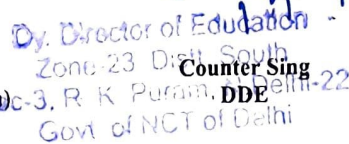 Dy. Director of Education
Zone-23 Distt. South
Counter Sing
c-3, R K Puram, N Delhi-22
DDE
Govt of NCT of Delhi